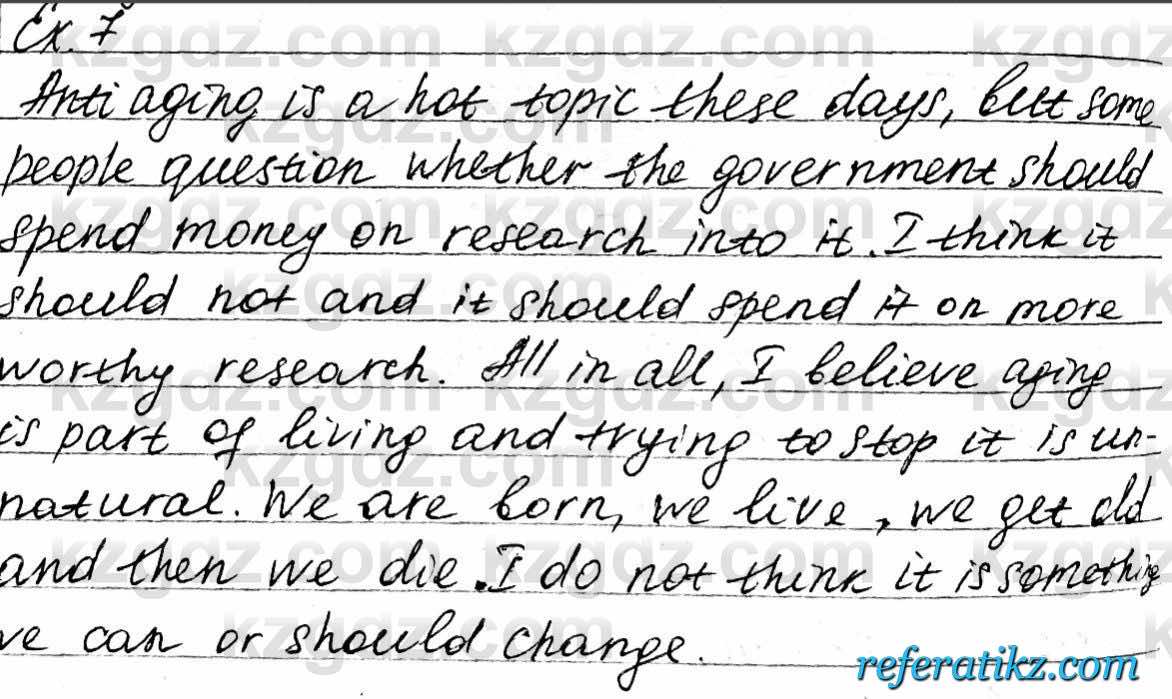 Ex. 7
Anti aging is a hot topic these days, but some
people question whether the government should
spend money on research into it. I think it
should not and it should spend it on more
worthy research. All in all, I believe aging
is part of living and trying to stop it is un-
natural. We are born, we live, we get old
and then we die. I do not think it is something
we can or should change.
referatikz.com
kzgdz.com